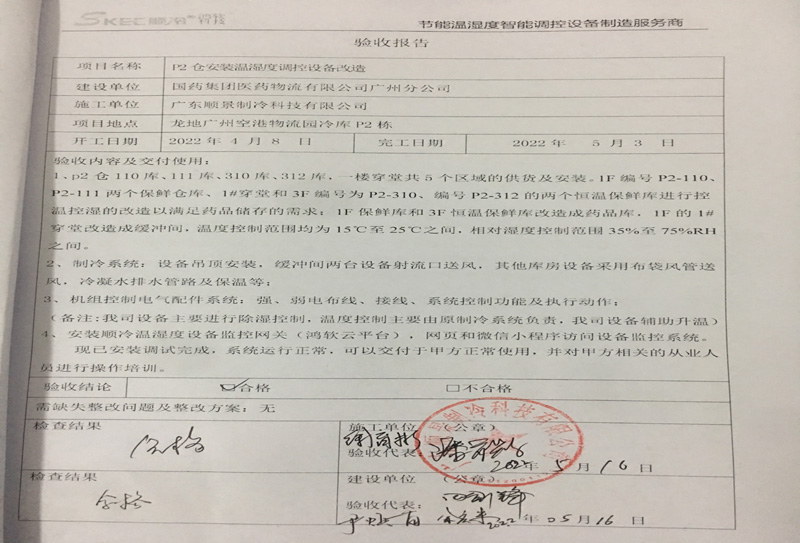 SKEC 顺冷® 科技
节能温湿度智能调控设备制造服务商
验收报告
项目名称 P2仓安装温湿度调控设备改造
建设单位 国药集团医药物流有限公司广州分公司
施工单位 广东顺景制冷科技有限公司
项目地点 龙地广州空港物流园冷库P2栋
开工日期 2022年4月8日 完工日期 2022年5月3日
验收内容及交付使用：
1、p2仓110库、111库、310库、312库，一楼穿堂共5个区域的供货及安装。1F编号P2-110、
P2-111两个保鲜仓库、1#穿堂和3F编号为P2-310、编号P2-312的两个恒温保鲜库进行控
温控湿的改造以满足药品储存的需求；1F保鲜库和3F恒温保鲜库改造成药品库，1F的1#
穿堂改造成缓冲间，温度控制范围均为15℃至25℃之间，相对湿度控制范围35%至75%RH
之间。
2、制冷系统：设备吊顶安装，缓冲间两台设备射流口送风，其他库房设备采用布袋风管送
风，冷凝水排水管路及保温等；
3、机组控制电气配件系统：强、弱电布线、接线、系统控制功能及执行动作；
（备注：我司设备主要进行除湿控制，温度控制主要由原制冷系统负责，我司设备辅助升温）
4、安装顺冷温湿度设备监控网关（鸿软云平台），网页和微信小程序访问设备监控系统。
现已安装调试完成，系统运行正常，可以交付于甲方正常使用，并对甲方相关的从业人
员进行操作培训。
验收结论 ☑合格 □不合格
需缺失整改问题及整改方案：无
检查结果 施工单位 （公章）
合格 验收代表：
2022年5月16日
检查结果 建设单位 （公章）
合格 验收代表：
2022年05月16日